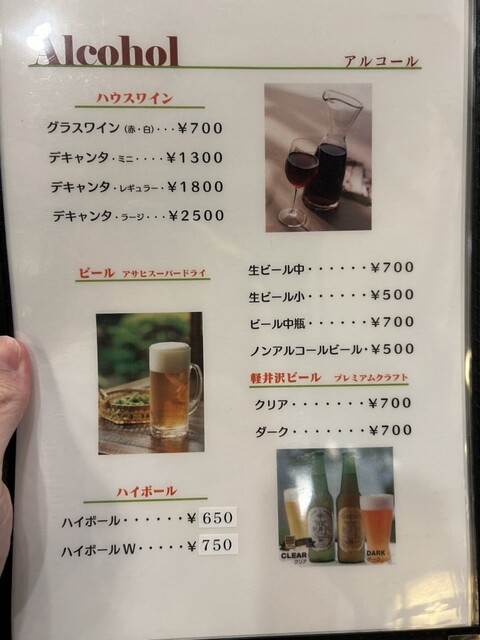 Alcohol
アルコール
ハウスワイン
グラスワイン(赤・白)・・・¥700
デキャンタ・ミニ・・・・¥1300
デキャンタ・レギュラー・¥1800
デキャンタ・ラージ・・・¥2500
ビール アサヒスーパードライ
生ビール中・・・・・・¥700
生ビール小・・・・・・¥500
ビール中瓶・・・・・・¥700
ノンアルコールビール・¥500
軽井沢ビール プレミアムクラフト
クリア・・・・・・・¥700
ダーク・・・・・・・¥700
CLEAR
クリア
DARK
ダーク
ハイボール
ハイボール・・・・・・¥650
ハイボールW・・・・・¥750